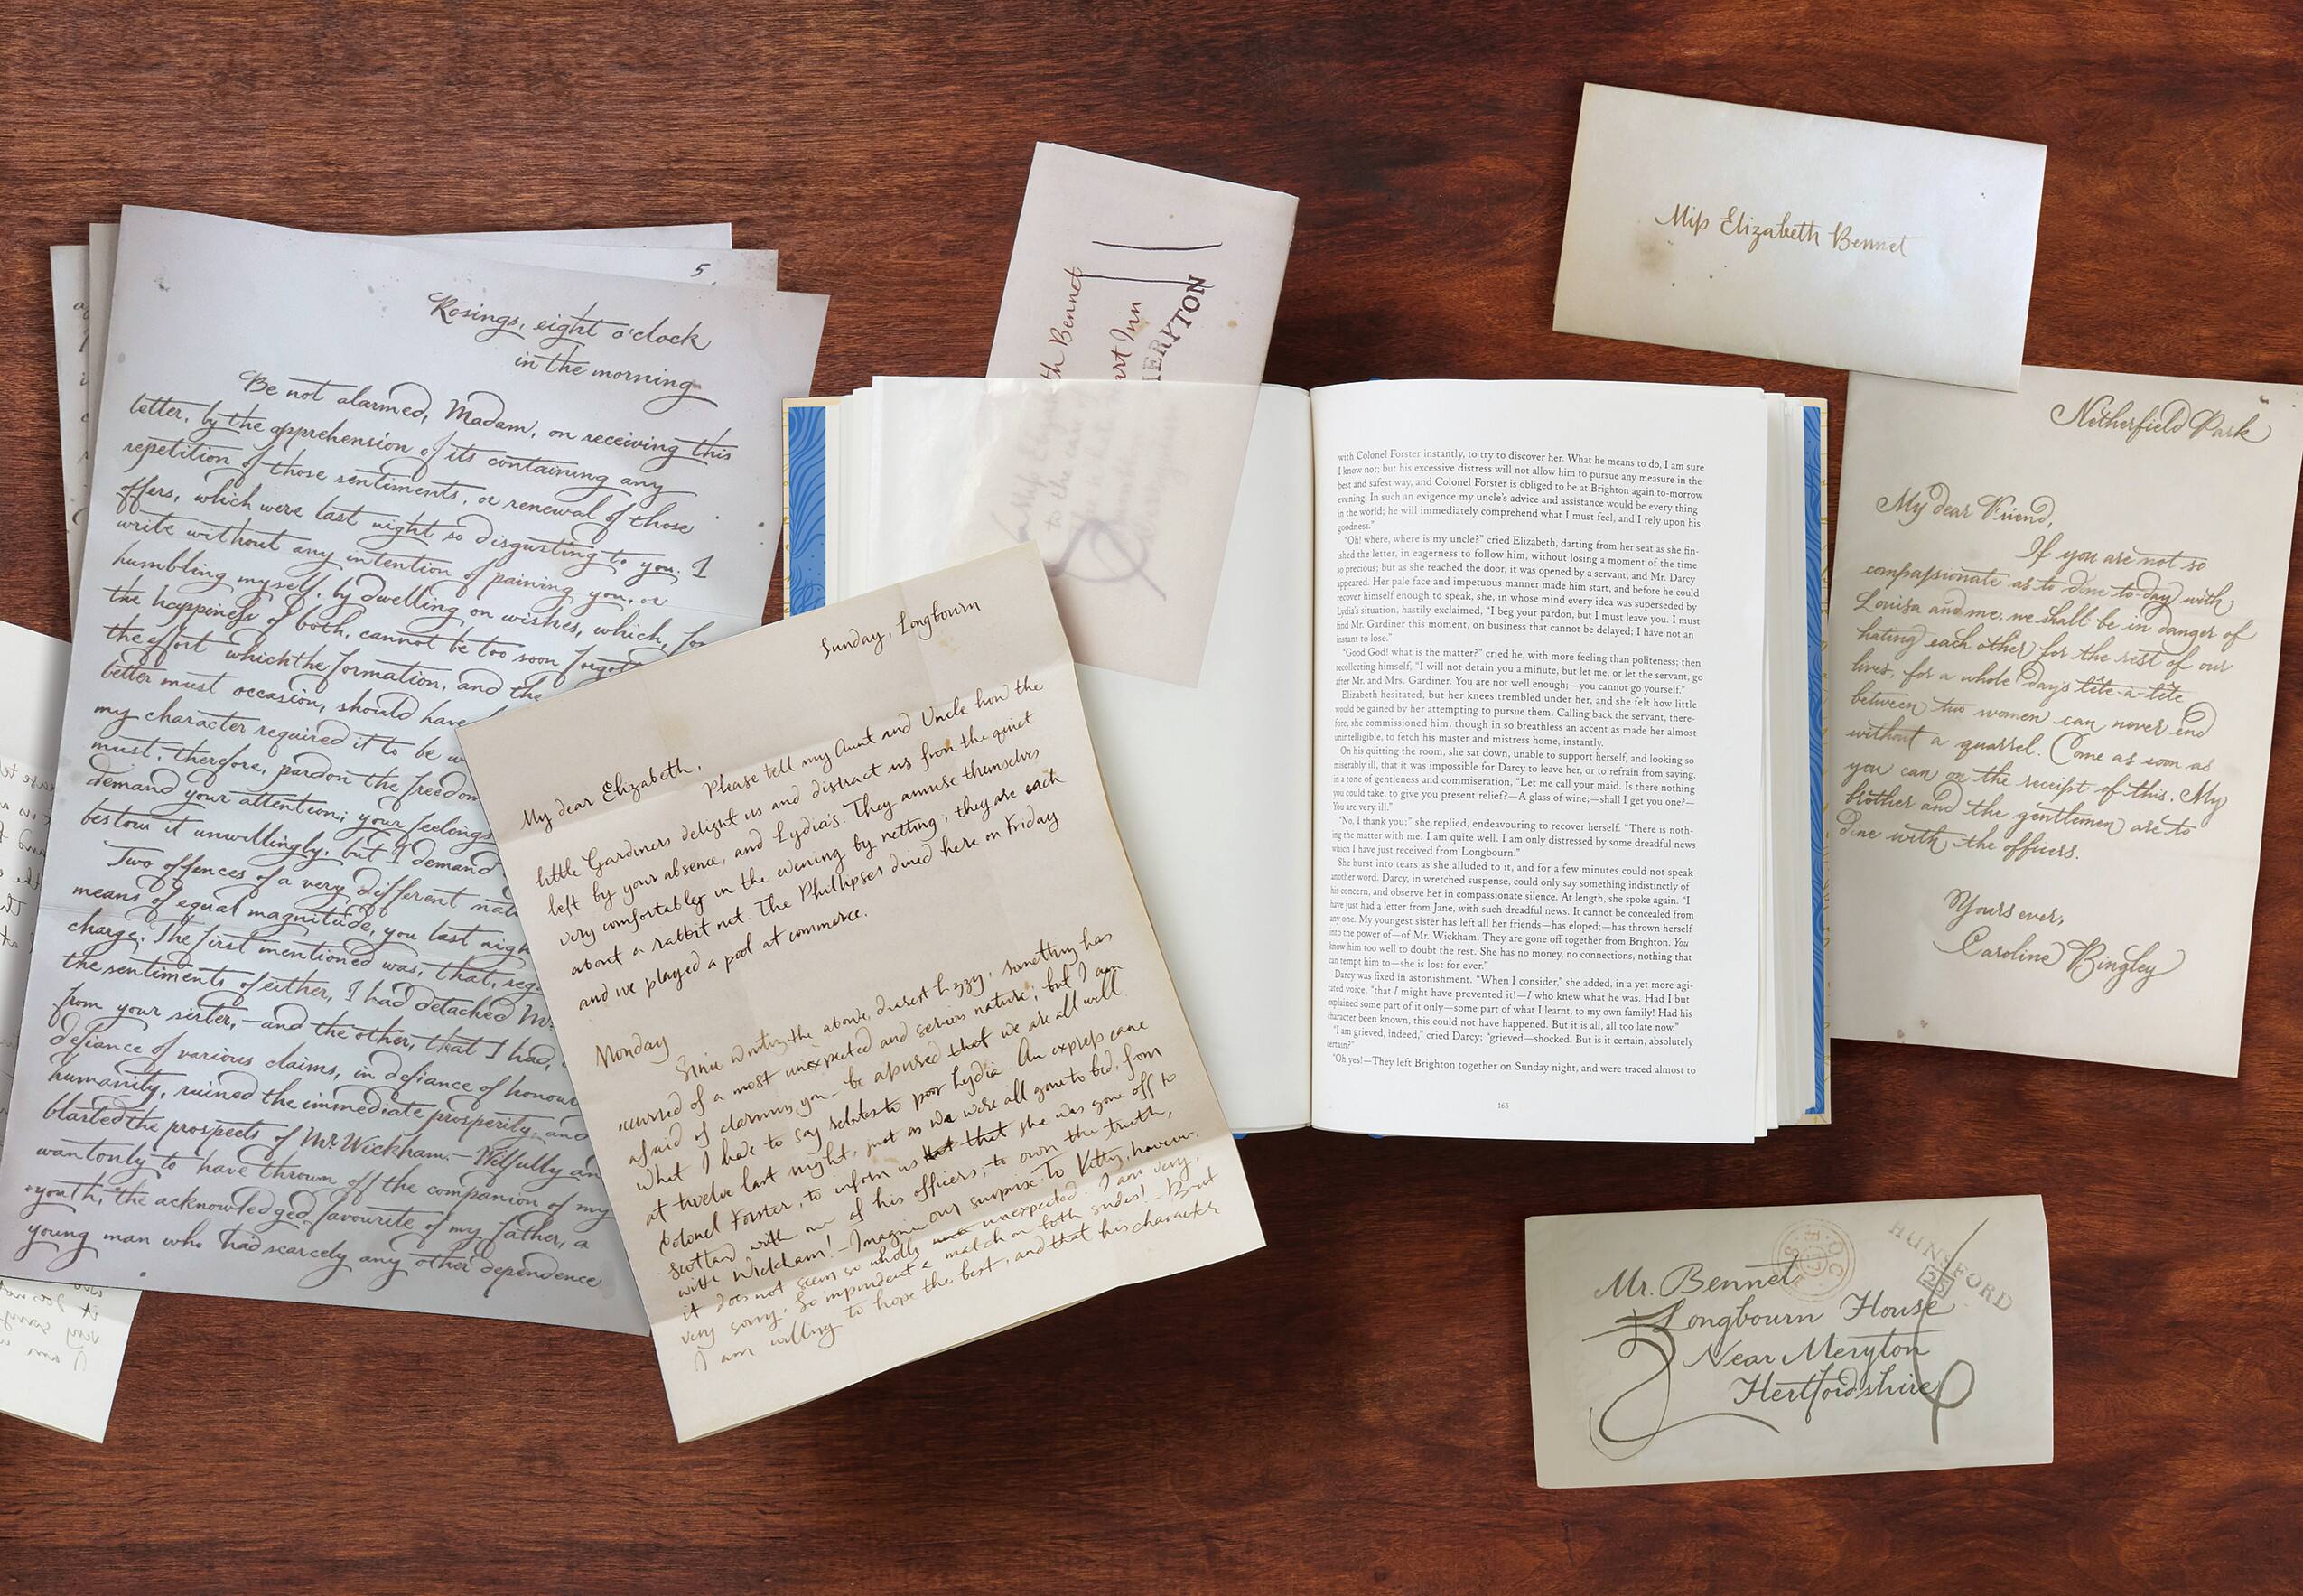 5
Rosings, eight o'clock
in the morning
Be not alarmed, Madam, on receiving this
letter, by the apprehension of its containing any
repetition of those sentiments, or renewal of those
offers, which were last night so disgusting to you. I
write without any intention of paining you, or
humbling myself, by dwelling on wishes, which, for
the happiness of both, cannot be too soon
the effort which the formation, and the
better must occasion, should have
my character required it to be
must, therefore, pardon the freedom
demand your attention; your feelings
bestow it unwillingly, but I demand
Two offences of a very different
means of equal magnitude, you last
charge. The first mentioned was, that,
the sentiments of either, I had detached
from your sister,—and the other, that I had,
defiance of various claims, in defiance of honour
humanity, ruined the immediate prosperity, and
blasted the prospects of Mr. Wickham.—Wilfully
wantonly to have thrown off the companion of my
youth, the acknowledged favourite of my father, a
young man who had scarcely any other dependence
Sunday, Longbourn
My dear Elizabeth,
Please tell my Aunt and Uncle how the
little Gardiners delight us and distract us from the quiet
left by your absence, and Lydia's. They amuse themselves
very comfortably in the evening by netting; they are each
about a rabbit net. The Phillipses dined here on Friday
and we played a pool at commerce.
Monday
Since writing the above, dearest Lizzy, something has
occurred of a most unexpected and serious nature; but I am
afraid of alarming you — be assured that we are all well.
What I have to say relates to poor Lydia. An express came
at twelve last night, just as we were all gone to bed, from
Colonel Forster, to inform us that that she was gone off to
Scotland with one of his officers; to own the truth,
with Wickham!—Imagine our surprise. To Kitty, however,
it does not seem so wholly unexpected. I am very,
very sorry. So imprudent a match on both sides!—But
I am willing to hope the best, and that his character
Bennet
Inn
MERYTON
with Colonel Forster instantly, to try to discover her. What he means to do, I am sure
I know not; but his excessive distress will not allow him to pursue any measure in the
best and safest way, and Colonel Forster is obliged to be at Brighton again to-morrow
evening. In such an exigence my uncle's advice and assistance would be every thing
in the world; he will immediately comprehend what I must feel, and I rely upon his
goodness."
"Oh! where, where is my uncle?" cried Elizabeth, darting from her seat as she fin-
ished the letter, in eagerness to follow him, without losing a moment of the time
so precious; but as she reached the door, it was opened by a servant, and Mr. Darcy
appeared. Her pale face and impetuous manner made him start, and before he could
recover himself enough to speak, she, in whose mind every idea was superseded by
Lydia's situation, hastily exclaimed, "I beg your pardon, but I must leave you. I must
find Mr. Gardiner this moment, on business that cannot be delayed; I have not an
instant to lose."
"Good God! what is the matter?" cried he, with more feeling than politeness; then
recollecting himself, "I will not detain you a minute, but let me, or let the servant, go
after Mr. and Mrs. Gardiner. You are not well enough;—you cannot go yourself."
Elizabeth hesitated, but her knees trembled under her, and she felt how little
would be gained by her attempting to pursue them. Calling back the servant, there-
fore, she commissioned him, though in so breathless an accent as made her almost
unintelligible, to fetch his master and mistress home, instantly.
On his quitting the room, she sat down, unable to support herself, and looking so
miserably ill, that it was impossible for Darcy to leave her, or to refrain from saying,
in a tone of gentleness and commiseration, "Let me call your maid. Is there nothing
you could take, to give you present relief?—A glass of wine;—shall I get you one?—
You are very ill."
"No, I thank you;" she replied, endeavouring to recover herself. "There is noth-
ing the matter with me. I am quite well. I am only distressed by some dreadful news
which I have just received from Longbourn."
She burst into tears as she alluded to it, and for a few minutes could not speak
another word. Darcy, in wretched suspense, could only say something indistinctly of
his concern, and observe her in compassionate silence. At length, she spoke again. "I
have just had a letter from Jane, with such dreadful news. It cannot be concealed from
any one. My youngest sister has left all her friends—has eloped;—has thrown herself
into the power of—of Mr. Wickham. They are gone off together from Brighton. You
know him too well to doubt the rest. She has no money, no connections, nothing that
can tempt him to—she is lost for ever."
Darcy was fixed in astonishment. "When I consider," she added, in a yet more agi-
tated voice, "that I might have prevented it!—I who knew what he was. Had I but
explained some part of it only—some part of what I learnt, to my own family! Had his
character been known, this could not have happened. But it is all, all too late now."
"I am grieved, indeed," cried Darcy; "grieved—shocked. But is it certain, absolutely
certain?"
"Oh yes!—They left Brighton together on Sunday night, and were traced almost to
163
Miss Elizabeth Bennet
Netherfield Park
My dear Friend,
If you are not so
compassionate as to dine to-day with
Louisa and me, we shall be in danger of
hating each other for the rest of our
lives, for a whole day's tête-à-tête
between two women can never end
without a quarrel. Come as soon as
you can on the receipt of this. My
brother and the gentlemen are to
dine with the officers.
Yours ever,
Caroline Bingley
HUNSFORD
Mr. Bennet
Longbourn House
Near Meryton
Hertfordshire